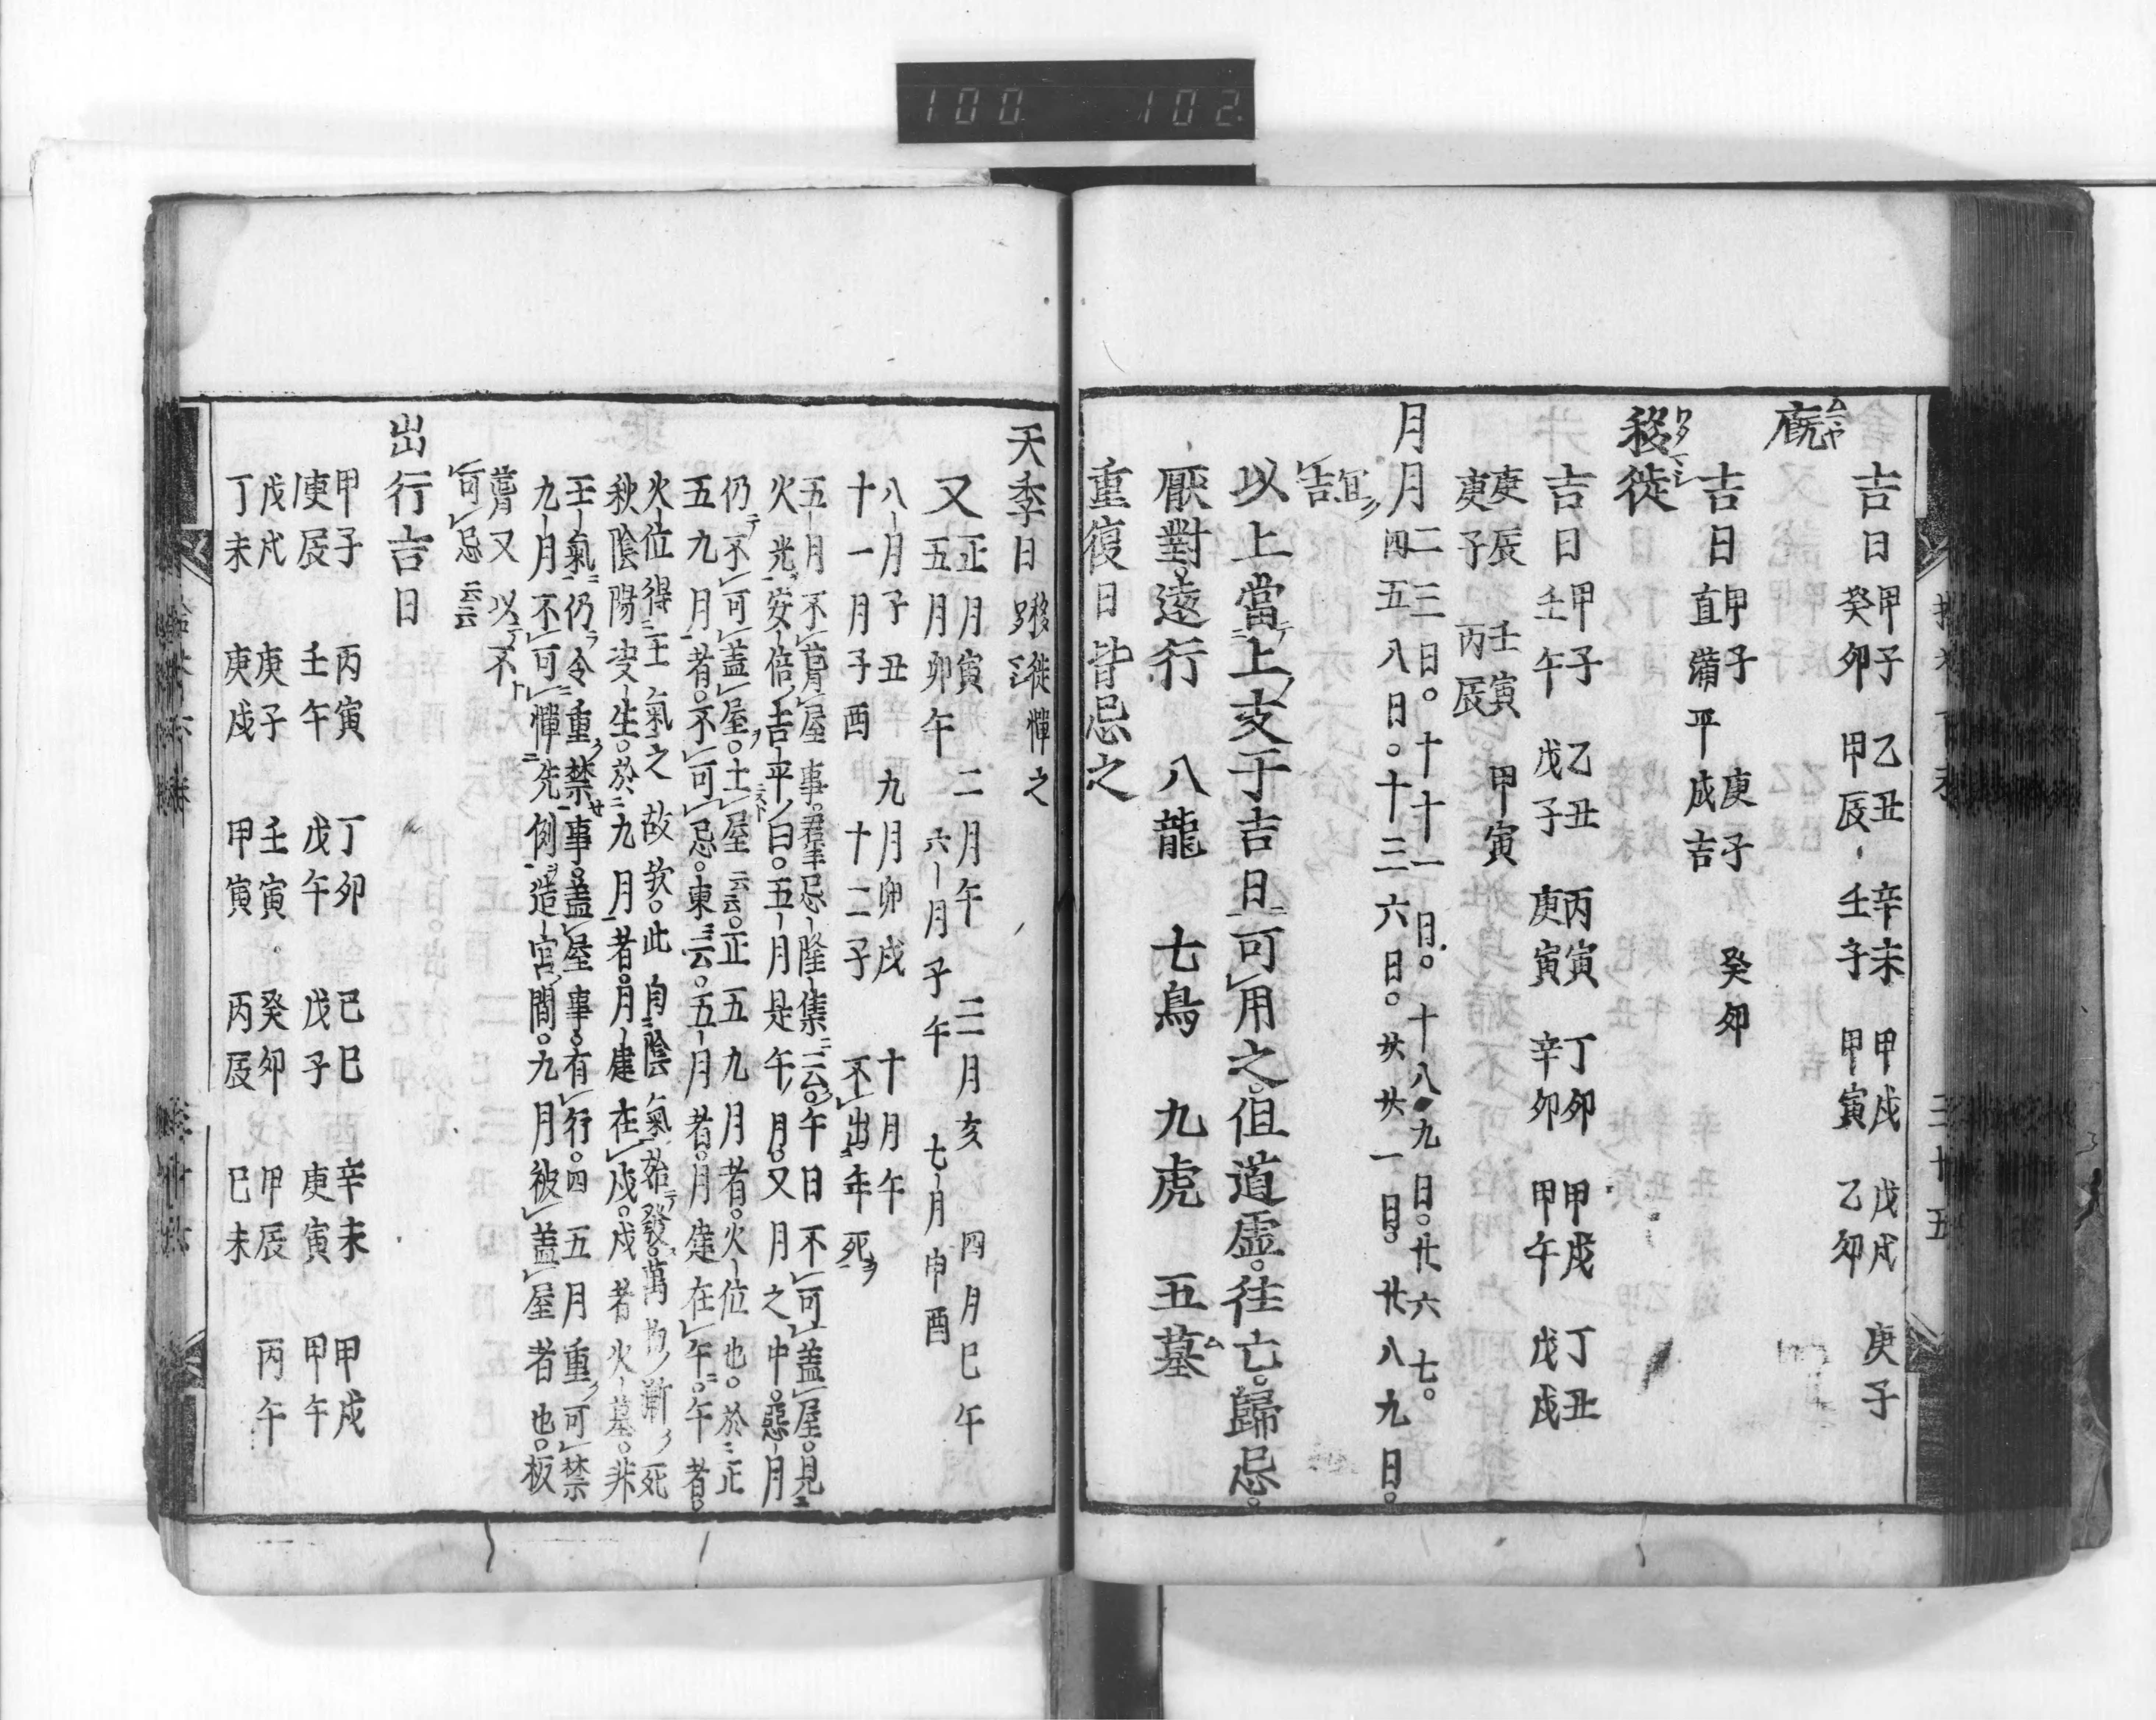 100 102
吉日
甲子 乙丑 辛未 甲戌 戊戌 庚子
癸卯 甲辰 壬子 甲寅 乙卯
廐 ムマヤ
吉日
甲子 庚子 癸卯
直滿平成吉
移徙 ワタマシ
吉日
甲子 乙丑 丙寅 丁卯 甲戌 丁丑
壬午 戊子 庚寅 辛卯 甲午 戊戌
庚辰 壬寅 甲寅
庚子 丙辰
月月
二三日。十十一日。十八九日。廿六七。
四五八日。十三六日。廿廿一日。廿八九日。
宜
吉
以上當上支干吉日可用之。但道虛。往亡。歸忌。
厭對。遠行 八龍 七鳥 九虎 五墓
重復日皆忌之
三十五
天季日
移徙憚之
又
正月寅 二月午 三月亥 四月巳午
五月卯午 六月子午 七月申酉
八月子丑 九月卯戌 十月午
十一月子酉 十二子 不出年死
五月不葺屋事。羣忌隆集云。午日不可蓋屋。見
火光。安倍吉平曰。五月是午月。又月之中。惡月
仍不可蓋屋。土屋云云。正五九月者。火位也。於正
五九月者。不可忌。東云。五月者。月建在午。午者。
火位得王氣之故歟。此自陰氣始發。萬物漸死
秋陰陽变生。於九月者。月建在戌。戌者火墓。非
王氣。仍令重禁事。蓋屋事。有行。四五月重可禁
九月不可憚先例。造宮間。九月被蓋屋者也。板
葺又以不
可忌云云
出行吉日
甲子 丙寅 丁卯 己巳 辛未 甲戌
庚辰 壬午 戊午 戊子 庚寅 甲午
戊戌 庚子 壬寅 癸卯 甲辰 丙午
丁未 庚戌 甲寅 丙辰 己未